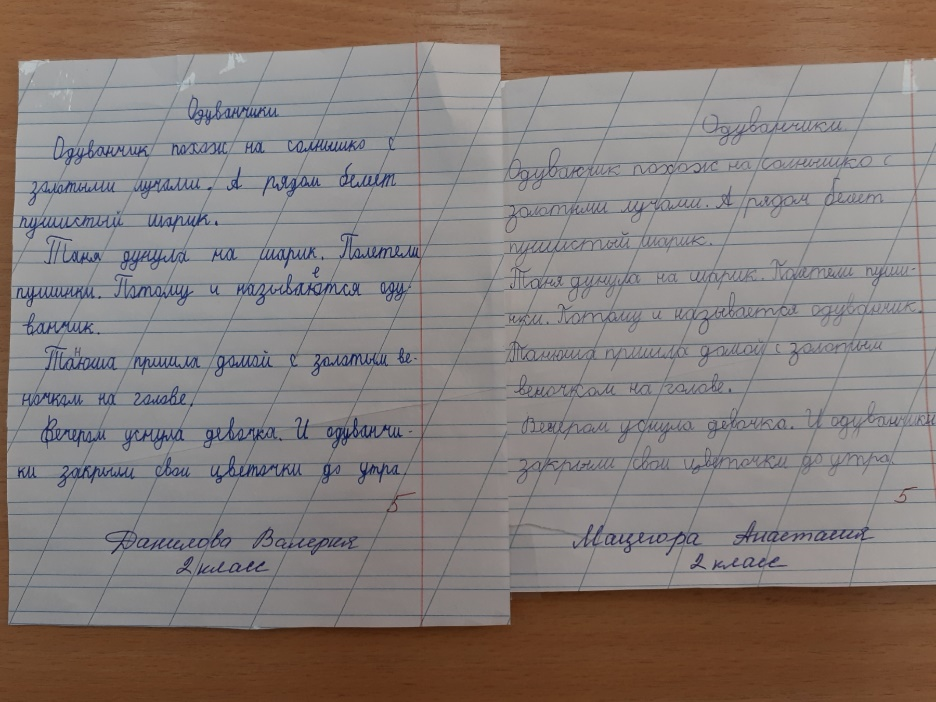 Одуванчики
Одуванчик похож на солнышко с
золотыми лучами. А рядом белеет
пушистый шарик.
Таня дунула на шарик. Полетели
пушинки. Потому и называются оду-
ванчик.
Танюша пришла домой с золотым ве-
ночком на голове.
Вечером уснула девочка. И одуванчи-
ки закрыли свои цветочки до утра.
5
Данилова Валерия
2 класс
Одуванчики
Одуванчик похож на солнышко с
золотыми лучами. А рядом белеет
пушистый шарик.
Таня дунула на шарик. Полетели пуши-
нки. Потому и называется одуванчик.
Танюша пришла домой с золотым
веночком на голове.
Вечером уснула девочка. И одуванчики
закрыли свои цветочки до утра.
5
Мацегора Анастасия
2 класс